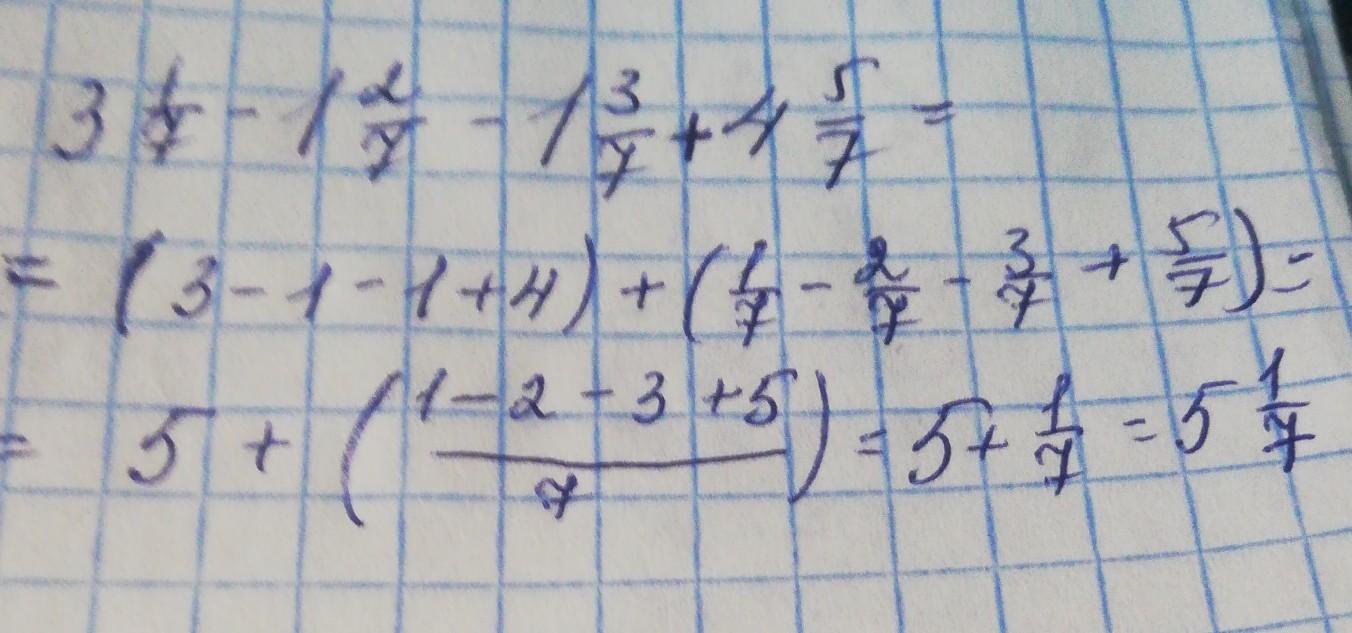 3 1/7 - 1 2/7 - 1 3/7 + 4 5/7 =
= (3 - 1 - 1 + 4) + (1/7 - 2/7 - 3/7 + 5/7) =
= 5 + ((1 - 2 - 3 + 5)/7) = 5 + 1/7 = 5 1/7